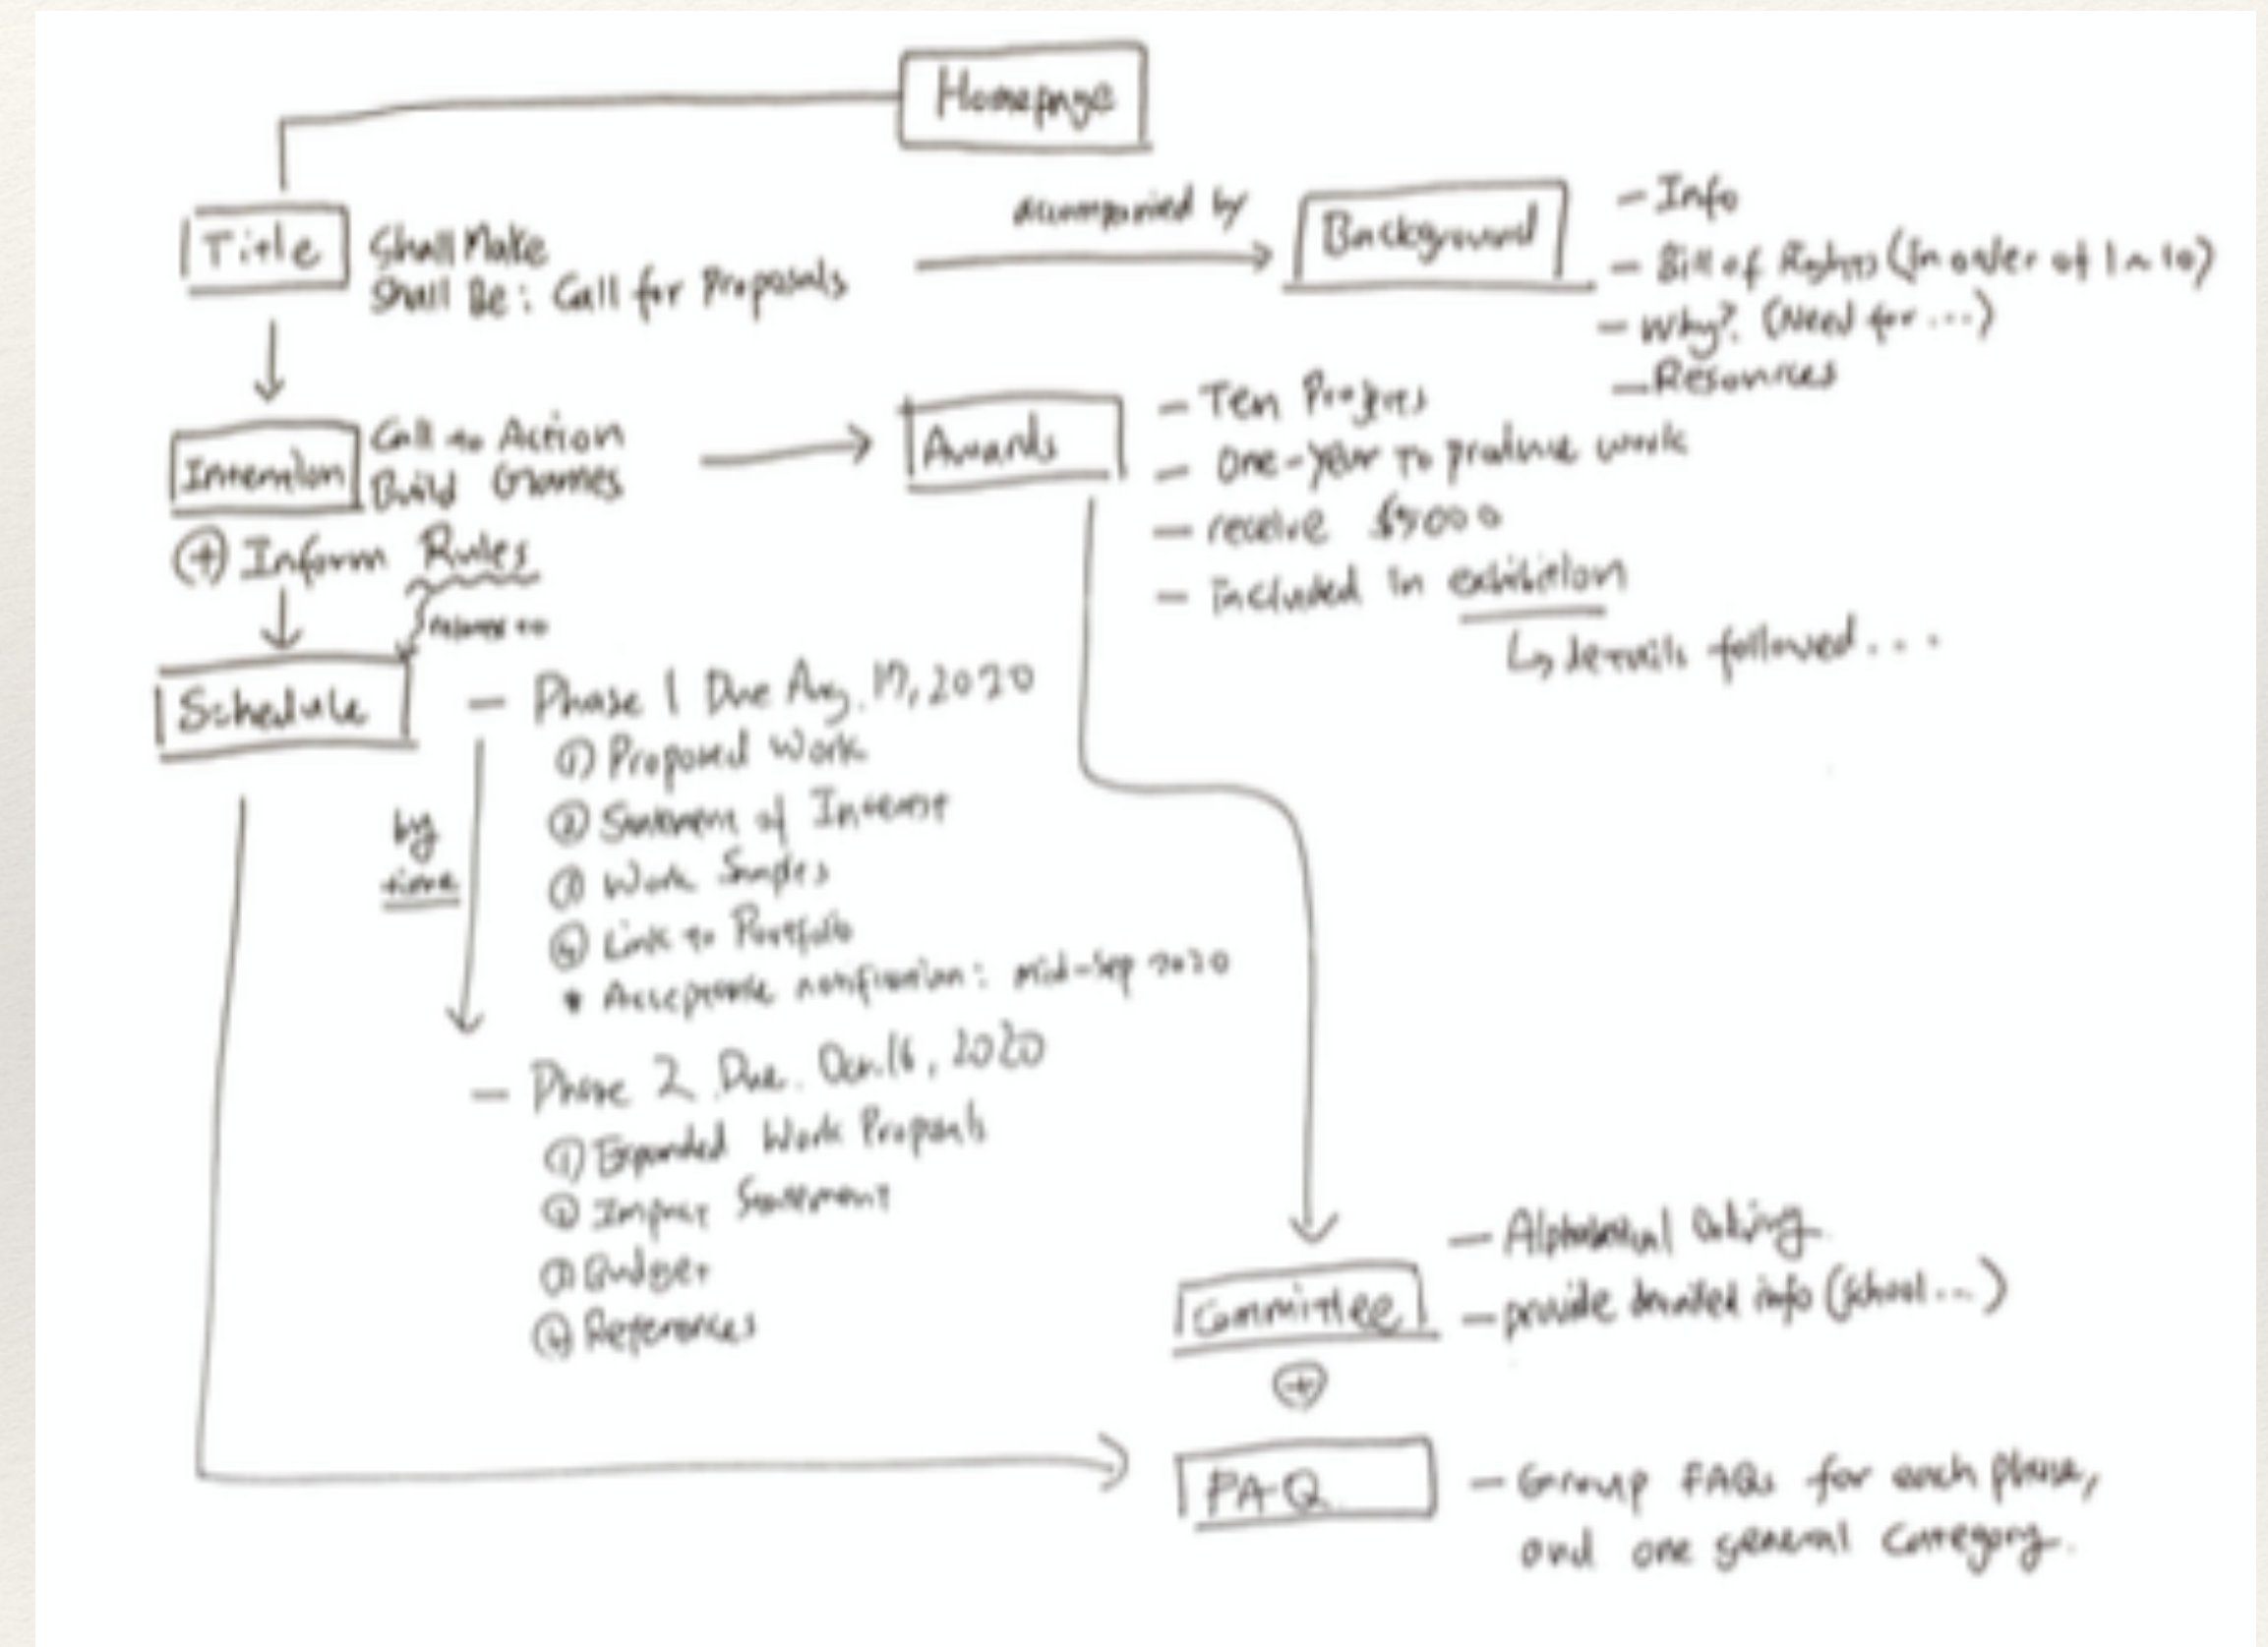 Homepage
Title
Shall Make
Shall Be: Call for Proposals
accompanied by
Background
- Info
- Bill of Rights (In order of 1~10)
- Why? (Need for ...)
- Resources
Intention
Call to Action
Build Games
+ Inform Rules
Awards
- Ten Projects
- One-Year to produce work
- receive
- included in exhibition
↳ details followed...
Schedule
- Phase 1 Due Aug. 17, 2020
① Proposed Work
② Statement of Interest
③ Work Samples
④ Link to Portfolio
* Acceptance notification: mid-Sep 2020
by
time
- Phase 2 Due. Oct. 16, 2020
① Expanded Work Proposals
② Impact Statement
③ Budget
④ References
Committee
- Alphabetical
- provide detailed info (school...)
+
FAQ
- Group FAQs for each phase,
and one general category.